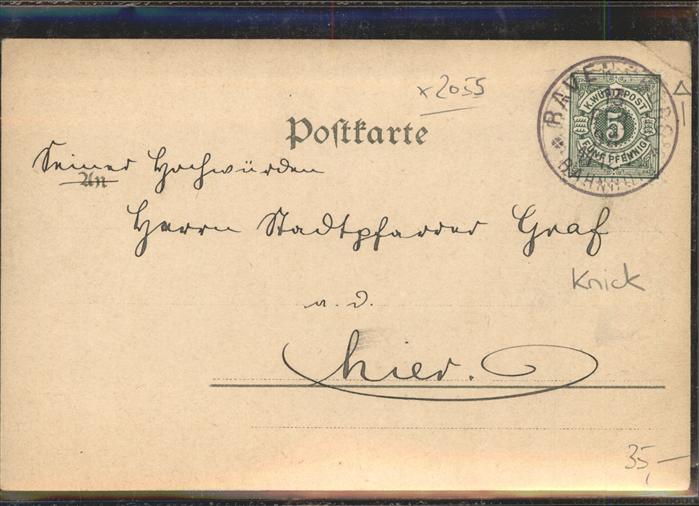 x 2055
Postkarte
RAVENSBURG
BAHNHOF
K. WÜRTT. POST
5
FÜNF PFENNIG
Seiner Hochwürden
An
Herrn Stadtpfarrer Graf
a. D.
hier.
Knick
35,-